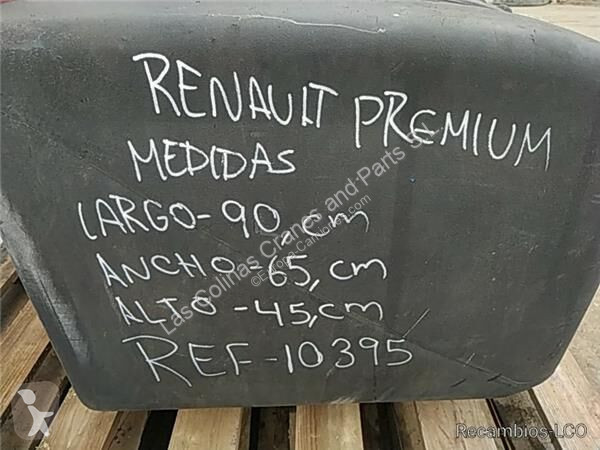 RENAULT PREMIUM
MEDIDAS
LARGO-90,cm
ANCHO-65,cm
ALTO-45,cm
REF-10395
Las Colinas Cranes and Parts S.L.
©Europa-Camiones.com
Recambios-LCO